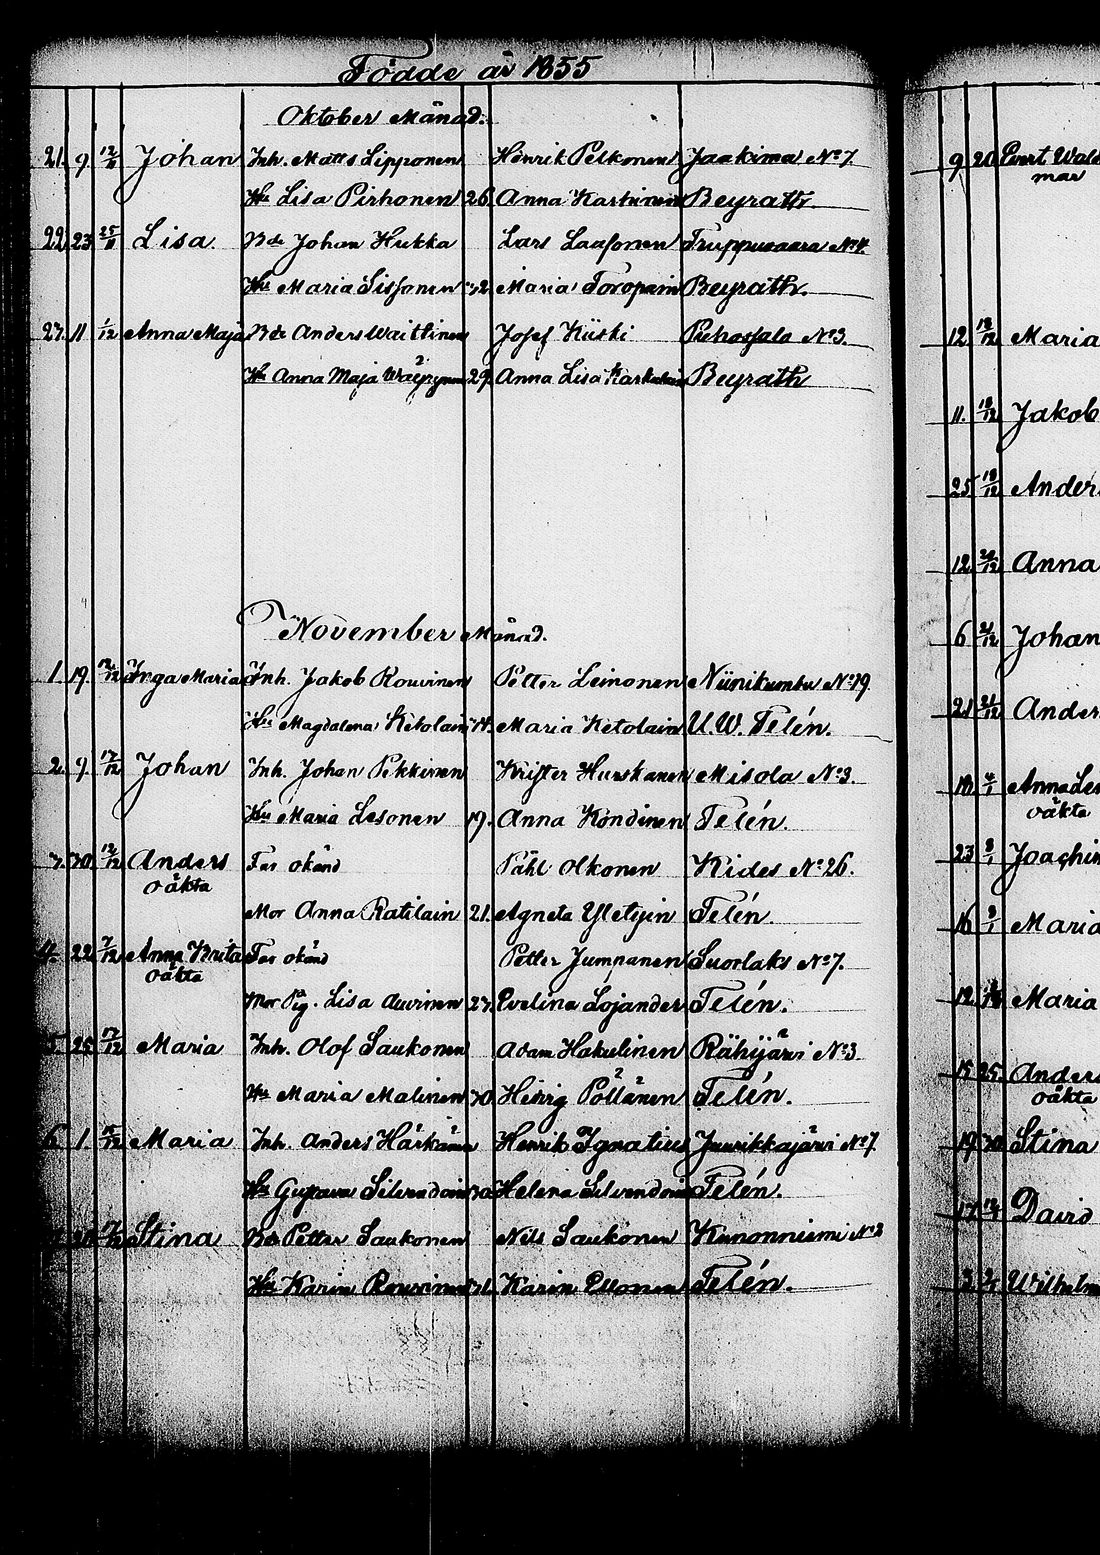 Födde år 1855
Oktober Månad.
21. 9. 12/11 Johan Inh. Matts Lipponen Henrik Pelkonen Jaakima No 7
Hu Lisa Pirhonen 26. Anna Karhinen Beyrath.
22. 23. 25/11 Lisa. Bde Johan Hukka Lars Laasonen Truppuvaara No 4.
Hu Maria Sissonen 32. Maria Toropain Beyrath.
23. 11 1/12 Anna Maja Bde Anders Waittinen Josef Kiiski Pirhosfalo No 3.
Hu Anna Maja Wäyrynen 29. Anna Lisa Beyrath
November Månad.
1. 19. Inga Maria Inh. Jakob Rouvinen Petter Leinonen Niinikumbu No 19.
Hu Magdalena Ketolain Maria Ketolain U.W. Telén.
2. 9. 17/12 Johan Inh. Johan Pekkinen Krister Hurskanen Misola No 3.
Hu Maria Lesonen 19. Anna Kondinen Telén.
3. 30. 12/12 Anders Far okänd Påhl Olkonen Kides No 26.
oäkta
Mor Anna Ratilain 21. Agneta Yletyin Telén.
4. 22. 7/12 Anna Brita Far okänd Petter Jumpanen Suorlaks No 7.
oäkta
Mor Pig. Lisa Auvinen 23. Evelina Lojander Telén.
5. 25. 17/12 Maria Inh. Olof Saukonen Adam Hakulinen Rähijärvi No 3.
Hu Maria Malinen 30. Hedvig Pöllänen Telén.
6. 1. Maria Inh. Anders Härkänen Henrik Ignatius Juurikkajärvi No 7.
Hu Gustava Silvendoin 30 Helena Silvendoin Telén.
Stina Bde Petter Saukonen Nils Saukonen Kunonniemi No 2
Hu Karin Rouvinen Karin Ellonen Telén.
9 20 Evert Wald
mar
12. 18/12 Maria
11. 18/12 Jakob
25 18/12 Anders
12 24/12 Anna
6 21/12 Johan
21 21/12 Anders
18 4/1 Anna Le
oäkta
23 8/1 Joachim
16 9/1 Maria
12. Maria
15 25. Anders
oäkta
19 30 Stina
17. David
3 Wilhelm